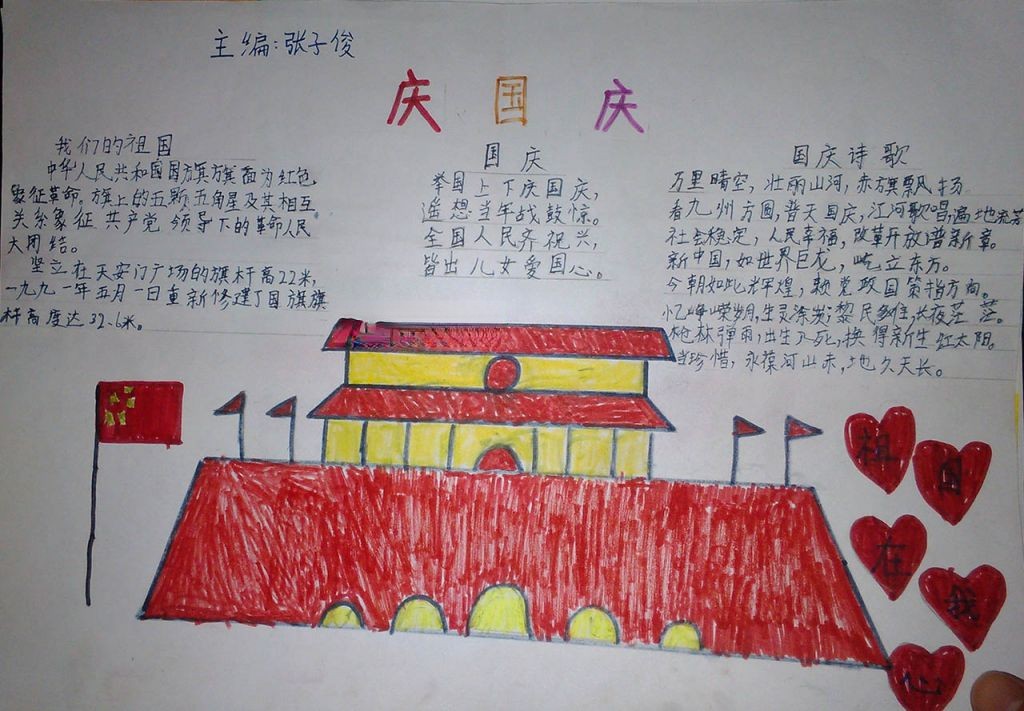 主编:张子俊
庆国庆
我们的祖国
中华人民共和国国旗旗面为红色,
象征革命。旗上的五颗五角星及其相互
关系象征共产党领导下的革命人民
大团结。
坚立在天安门广场的旗杆高22米,
一九九一年五月一日重新修建了国旗旗
杆高度达32.6米。
国庆
举国上下庆国庆,
遥想当年战鼓惊。
全国人民齐祝兴,
皆出儿女爱国心。
国庆诗歌
万里晴空,壮丽山河,赤旗飘扬。
看九州方圆,普天国庆,江河歌唱,高地流芳
社会稳定,人民幸福,改革开放谱新章。
新中国,如世界巨龙,屹立东方。
今朝如此辉煌,赖党政国策指方向。
忆峥嵘岁月,生灵涂炭;黎民多住,长夜茫茫。
枪林弹雨,出生入死,换得新生红太阳。
当珍惜,永葆河山赤,地久天长。
祖
国
在
我
心